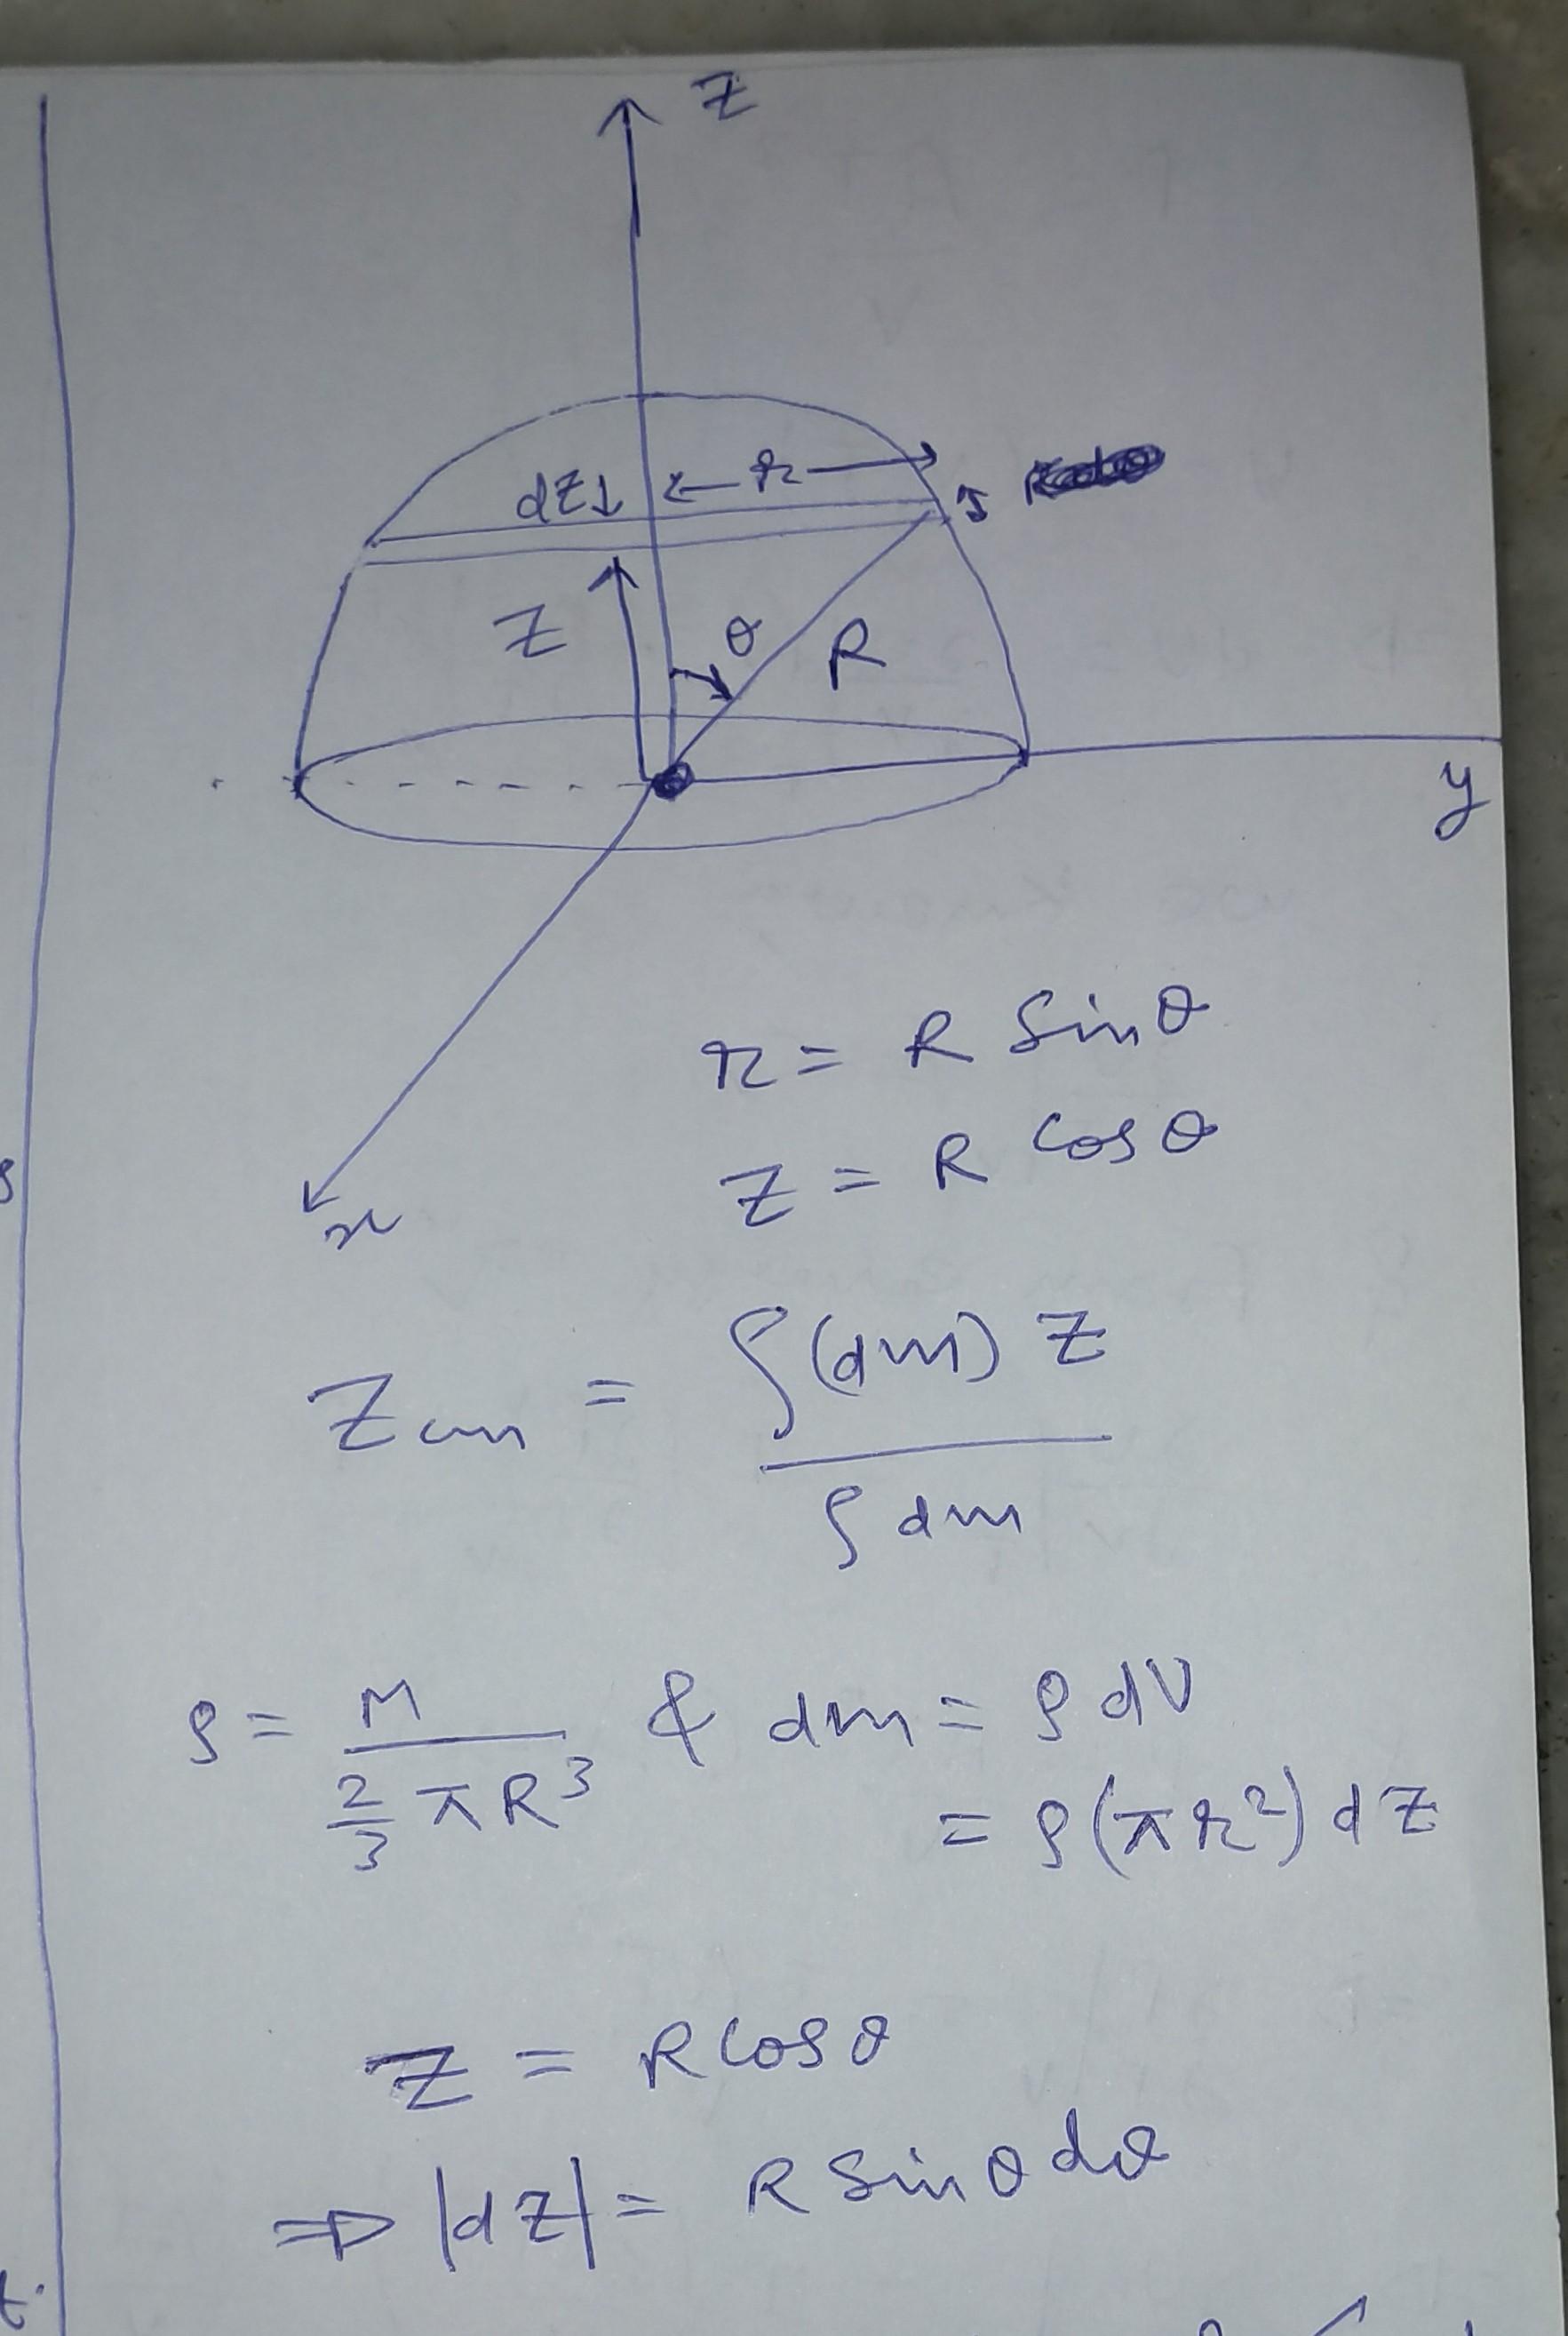 z
dz↓ ←r→
z θ R
y
x
r = R Sinθ
z = R Cosθ
Zcm = ∫(dm) z / ∫dm
ρ = M / (2/3 πR³) & dm = ρ dV
= ρ(πr²) dz
z = R Cosθ
⇒ |dz| = R Sinθ dθ
t.